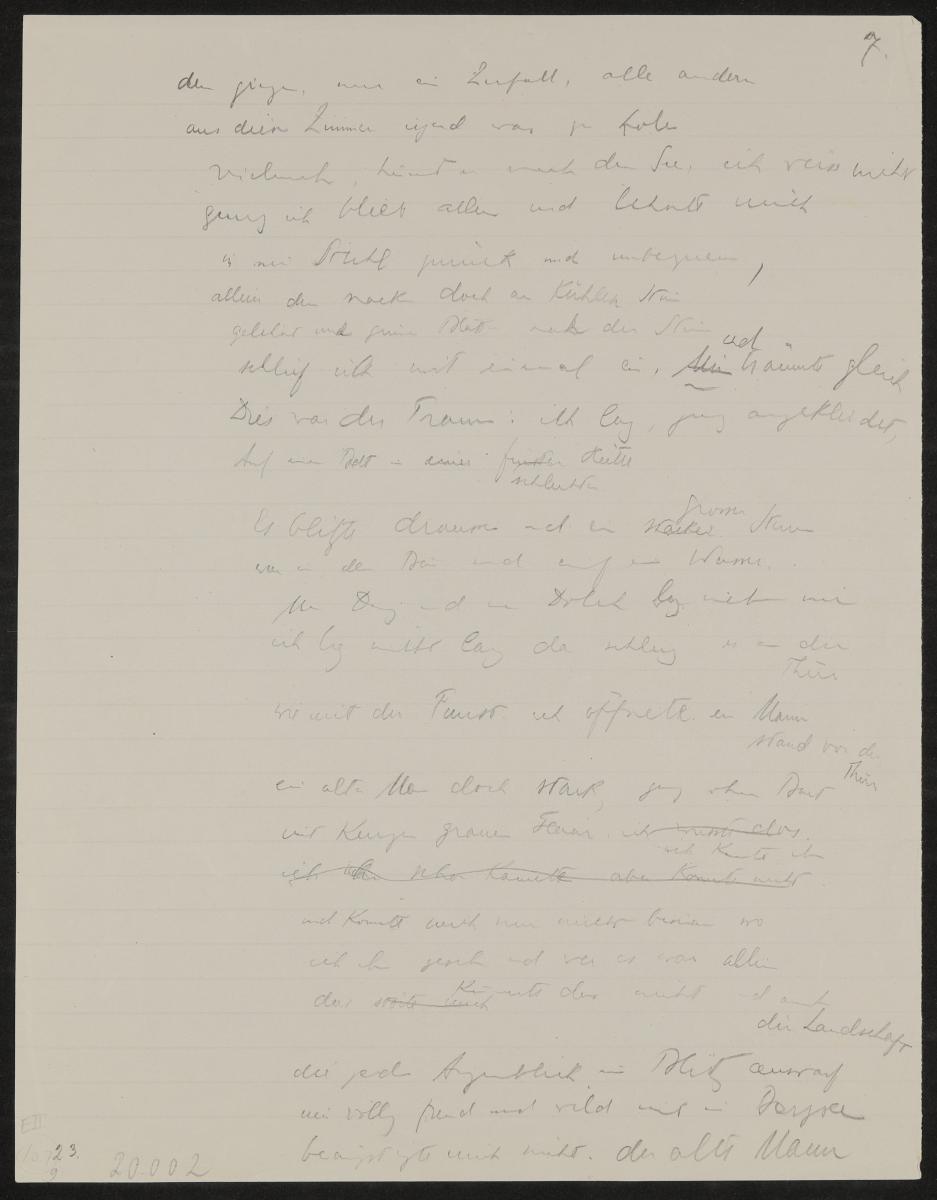 7.
den gingen, nur ein Zufall, alle andern
aus diesen Zimmern irgend was zu holen
vielmehr, hinunter nach dem See, ich weiss nicht
genug ich blieb allein und lehnte mich
in mein Stuhl zurück und unbequem,
allein den nacken doch an kühlen Stein
gelehnt und
schlief ich mit einmal ein, und träumte gleich
Dies war der Traum: ich lag, ganz angekleidet,
Auf einem Bett in einer Hütte
schlechten
Es blitzte draussen und ein grosser Sturm
war in den Bäumen und auf dem Wasser.
Mein Degen und ein Dolch lag neben mir
ich lag nicht lang da schlug es an die
Thür
wie mit der Faust. ich öffnete. ein Mann
stand vor der
Thür
ein alter Mann doch stark, ganz ohne Bart
mit kurzen grauen Haar. ich wusste dass
ich kannte ihn
ich schon kannte aber konnte nicht
und konnte mich nur nicht besinnen wo
ich ihn gesehn und wer es war allein
das kümmerte mich nicht und auch
die Landschaft
die jeder Augenblick ein Blitz auswarf
mir völlig fremd und wild mit
beängstigte mich nicht. der alte Mann
E III
23.
9
20.002